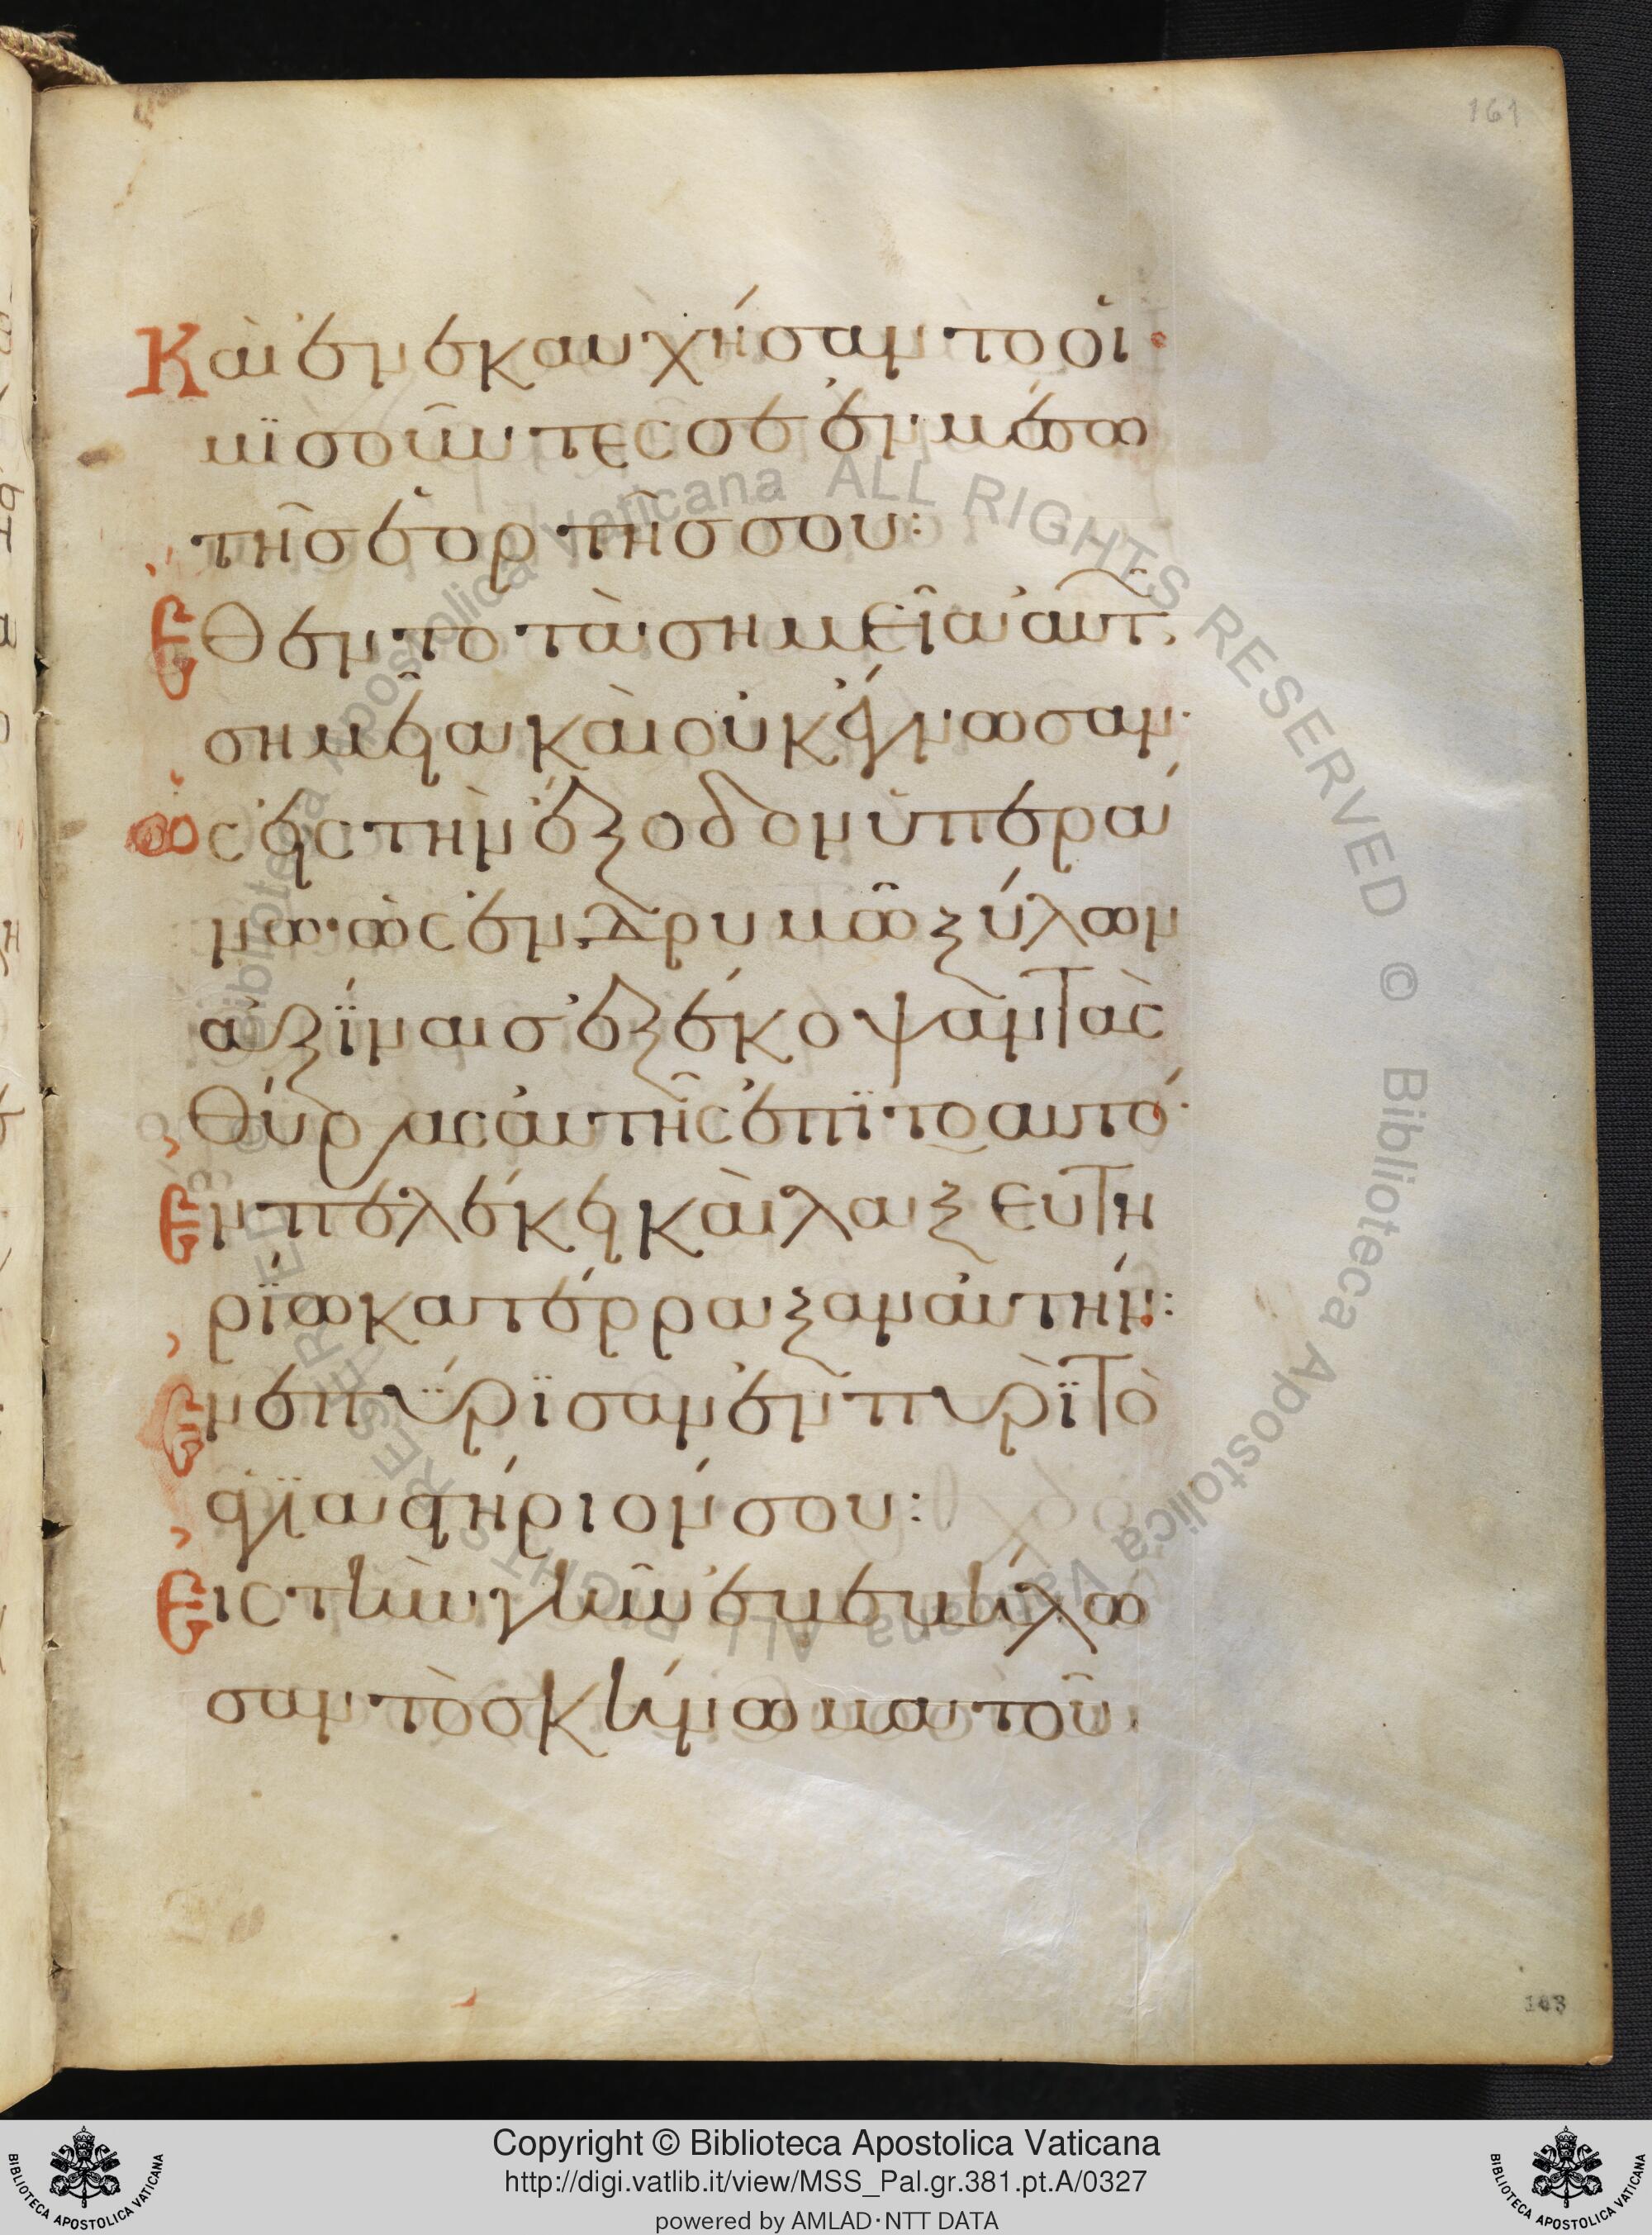 161
Καὶ ἐνεκαυχήσαντο οἱ
μϊσοῦντες σε ἐν μέσω
τῆσ ἑορτῆσ σου:
Ἔθεντο τὰ σημεῖα αὐτ
σημεῖα καὶ οὐκ ἔγνωσαν·
ὡς εἰς τὴν ἔξοδον ὑπερά
νω· ὡς ἐν δρυμῶ ξύλων
ἀξίναισ ἐξέκοψαν τὰς
θύρας αὐτῆς ἐπϊτοαυτό·
Ἐν πελέκει καὶ λαξευτη
ρίω κατέρραξαν αὐτήν:
Ἐνεπύρϊσαν ἐν πυρὶ τὸ
ἁγϊαστήριόν σου:
Εἰς τὴν γῆν ἐνεβήλω
σαν τὸ σκήνωμα τοῦ
163
© Biblioteca Apostolica Vaticana ALL RIGHTS RESERVED © Biblioteca Apostolica Vaticana ALL RIGHTS RESERVED
Copyright © Biblioteca Apostolica Vaticana
http://digi.vatlib.it/view/MSS_Pal.gr.381.pt.A/0327
powered by AMLAD·NTT DATA
BIBLIOTECA APOSTOLICA VATICANA
BIBLIOTECA APOSTOLICA VATICANA